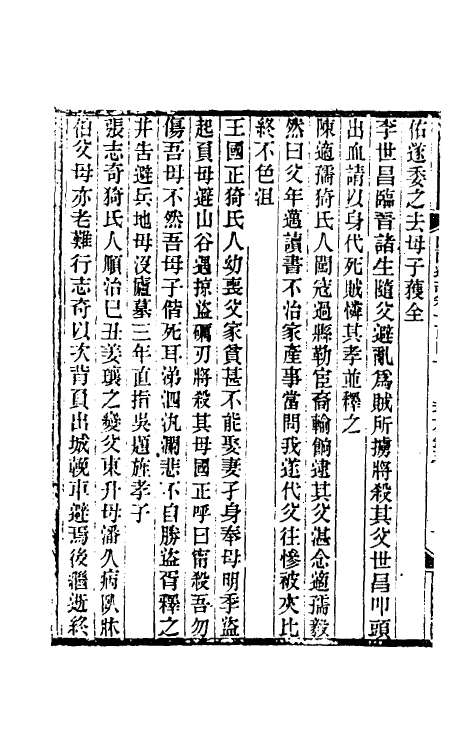 佑遂委之去母子獲全
李世昌臨晉諸生隨父避亂爲賊所擄將殺其父世昌叩頭
出血請以身代死賊憐其孝並釋之
陳適孺猗氏人闖寇過縣勒宦裔輸餉逮其父湛念適孺毅
然曰父年邁讀書不治家產事當問我遂代父往慘被夾比
終不色沮
王國正猗氏人幼喪父家貧甚不能娶妻孑身奉母明季盜
起負母避山谷遇掠盜礪刃將殺其母國正呼曰甯殺吾勿
傷吾母不然吾母子偕死耳涕泗汍瀾悲不自勝盜胥釋之
幷告避兵地母沒廬墓三年直指吳題旌孝子
張志奇猗氏人順治己丑姜瓖之變父東升母潘久病臥牀
伯父母亦老難行志奇以次背負出城輓車避焉後繼逝終